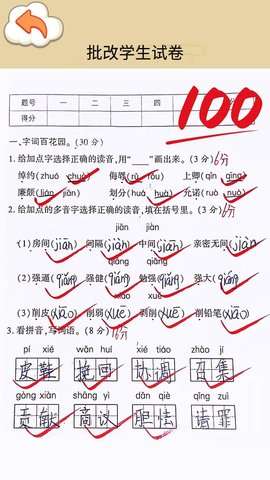 批改学生试卷
题号 一 二 三 四
得分
100
一、字词百花园。(30分)
1.给加点字选择正确的读音,用"___"画出来。(3分) 6分
绰约(zhuó chuò) 侮辱(rǔ rǒu) 上卿(qīng qíng)
廉颇(lián jiān) 划分(huá huà) 允诺(ruò nuò)
2.给加点的多音字选择正确的读音,填在括号里。(3分)
jiān jiàn
(1)房间(jiān) 间隔(jiàn) 中间(jiān) 亲密无间(jiàn)
qiáng qiǎng
(2)强逼(qiǎng) 强健(qiáng) 勉强(qiǎng) 强大(qiáng)
xiāo xuē
(3)削皮(xiāo) 削弱(xuē) 剥削(xuē) 削铅笔(xiāo)
3.看拼音,写词语。(8分) 16分
pí xié wǎn huí xié tiáo zhào jí
皮鞋 挽回 协调 召集
gòng xiàn shāng yì dǎn qiè qǐng zuì
贡献 商议 胆怯 请罪